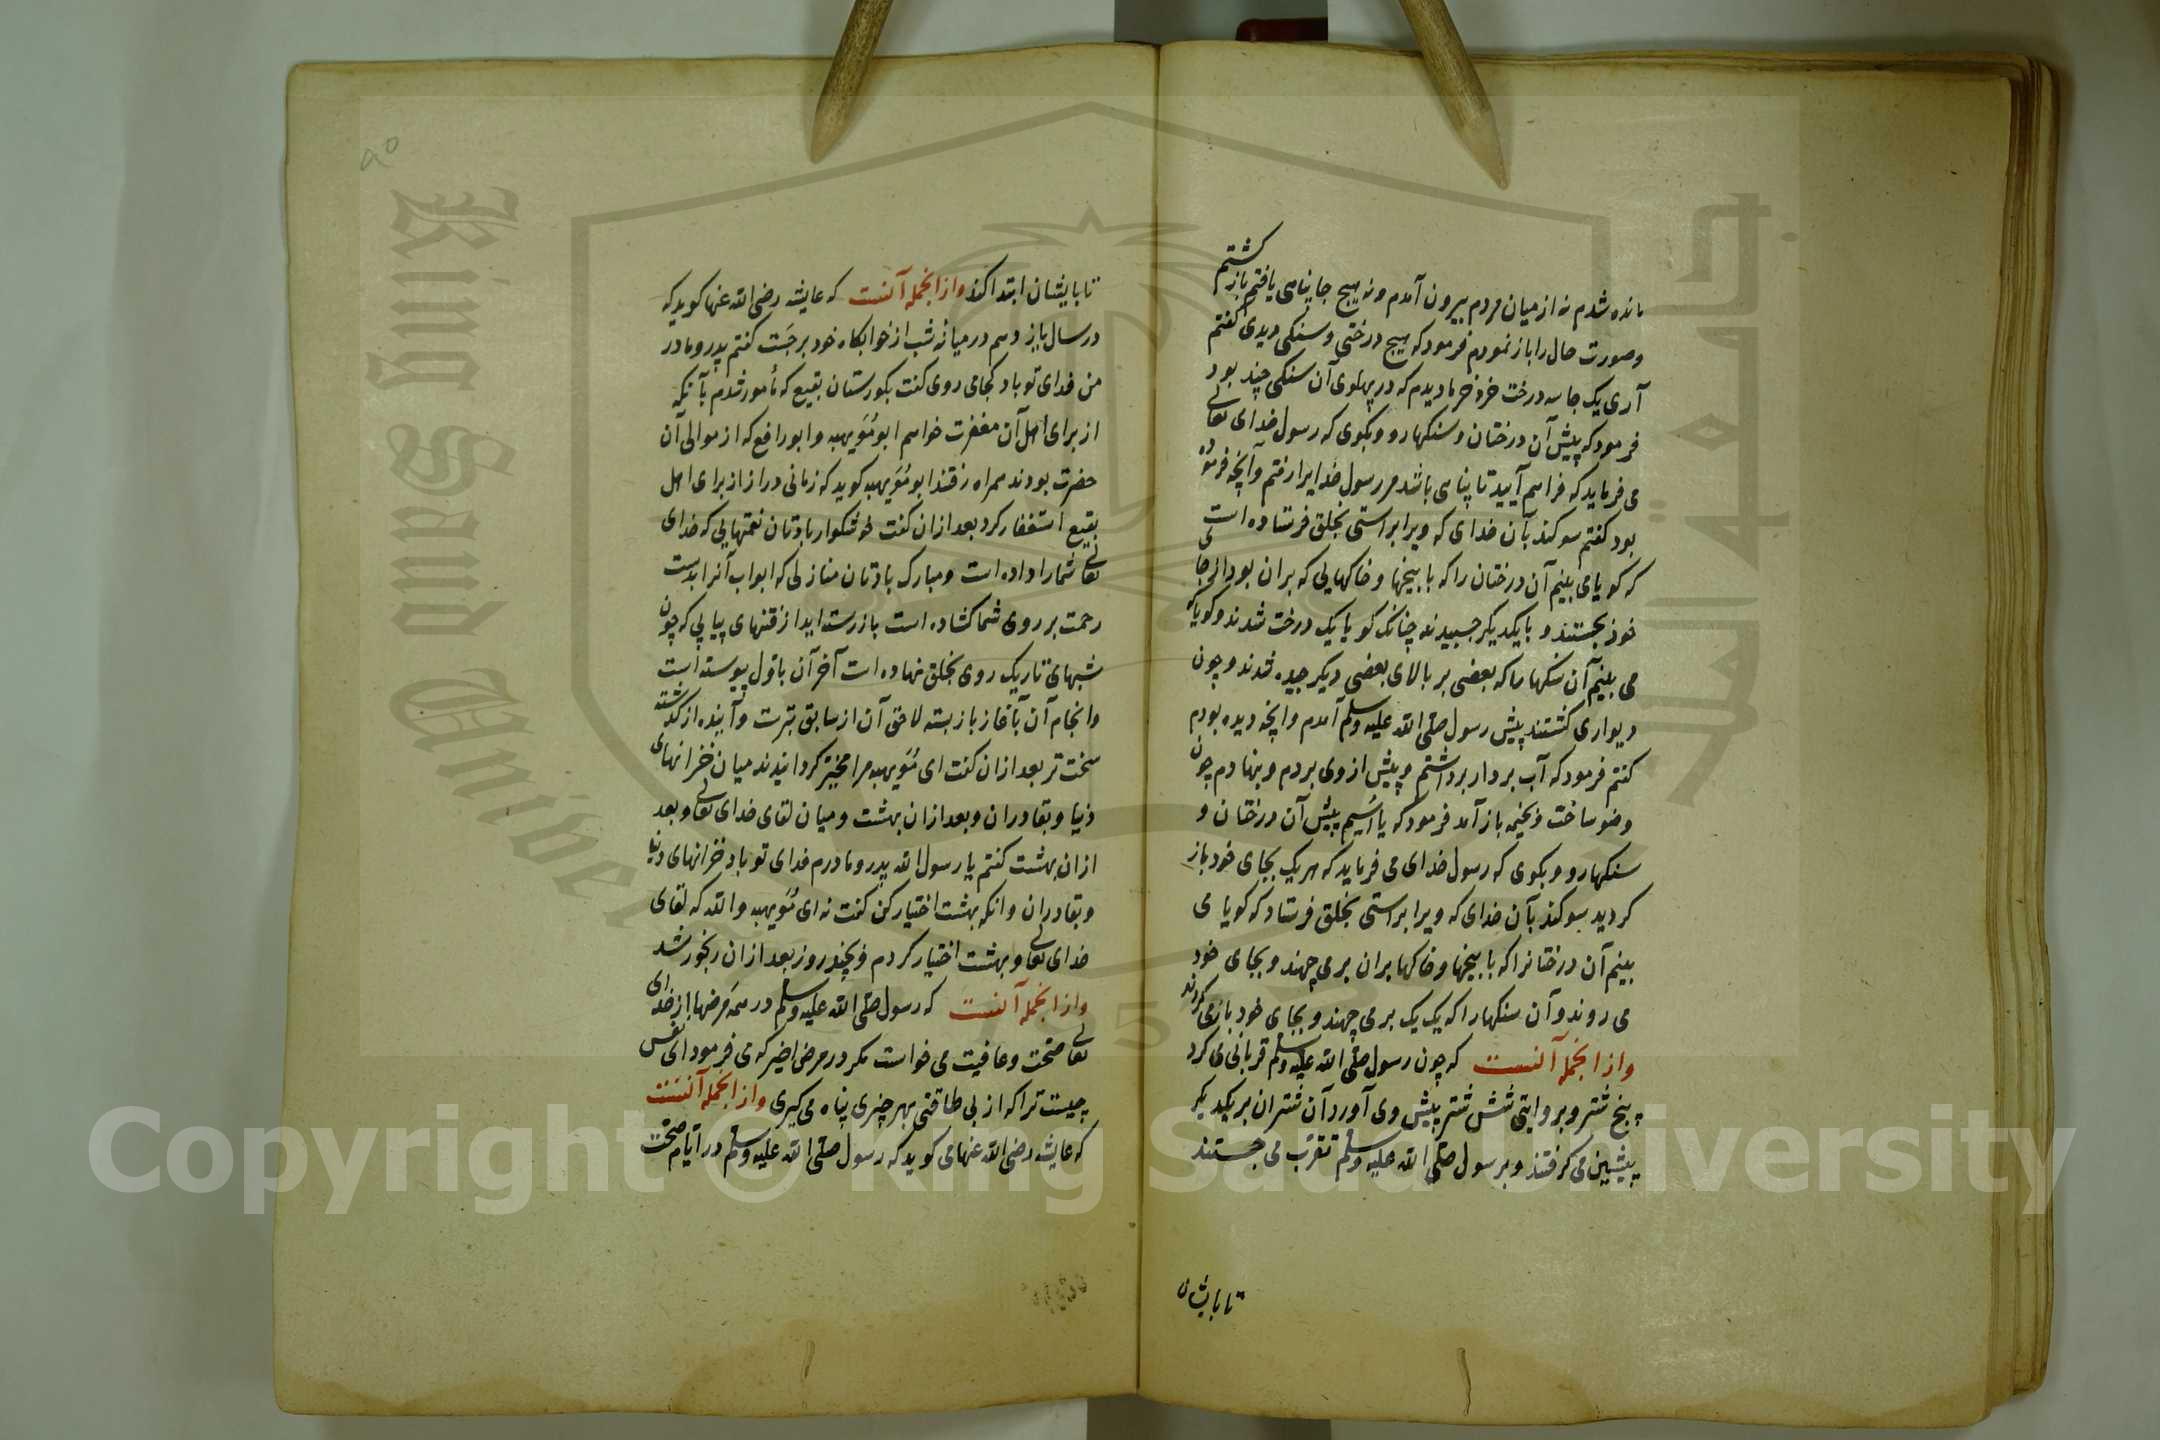 مانده شدم نه از میان مردم بیرون آمدم و نه هیچ جا پناهی یافتم باز کشتم
و صورت حال را باز نمودم فرمود که هیچ درختی و سنکی دیدی کفتم
آری یک جا سه درخت خرد خرما دیدم که در پهلوی آن سنکی چند بود
فرمود که پیش آن درختان و سنکها رو و بکوی که رسول خدای تعالی
می فرماید که فراهم آیید تا پناهی باشد مر رسول خدایرا رفتم و آنچه فرموده
بود کفتم سوکند بآن خدای که ویرا براستی بخلق فرستاده است
که کویا می بینم آن درختان را که با بیخها و خاکهایی که بران بود از جای
خود بجستند و با یکدیکر چسبیدند چنانک کویا یک درخت شدند و کویا که
می بینم آن سنکها را که بعضی بر بالای بعضی دیکر چیده شدند و چون
دیواری کشتند پیش رسول صلی الله علیه وسلم آمدم و آنچه دیده بودم
کفتم فرمود که آب بردار برداشتم و پیش از وی بردم و بنهادم چون
وضو ساخت و بخیمه باز آمد فرمود که یا اسیم پیش آن درختان و
سنکها رو و بکوی که رسول خدای می فرماید که هر یک بجای خود باز
کردید سوکند بآن خدای که ویرا براستی بخلق فرستاد که کویا می
بینم آن درختانرا که با بیخها و خاکها بران بر می جهند و بجای خود
می روند و آن سنکها را که یک یک بر می جهند و بجای خود باز می کردند
و از انجمله آنست که چون رسول صلی الله علیه وسلم قربانی می کرد
پنج شتر و بروایتی شش شتر پیش وی آورد آن شتران بر یکدیکر
پیشین می کرفتند و برسول صلی الله علیه وسلم تقرب می جستند
تا بایشان
تا بایشان ابتدا کند و از انجمله آنست که عایشه رضی الله عنها کوید که
در سال یازدهم در میانه شب از خوابکاه خود برجست کفتم پدر و مادر
من فدای تو باد کجا می روی کفت بکورستان بقیع که مأمور شدم بآنکه
از برای اهل آن مغفرت خواهم ابو مویهبه و ابو رافع که از موالی آن
حضرت بودند همراه رفتند ابو مویهبه کوید که زمانی دراز از برای اهل
بقیع استغفار کرد بعد ازان کفت خوشکوار بادتان نعمتهایی که خدای
تعالی شما را داده است و مبارک بادتان منازلی که ابواب آنرا بدست
رحمت بر روی شما کشاده است باز رسته اید از فتنهای پیاپی که چون
شبهای تاریک روی بخلق نهاده است آخر آن باول پیوسته است
و انجام آن بآغاز باز بسته لاحق آن از سابق بترست و آینده از کذشته
سخت تر بعد ازان کفت ای مویهبه مرا مخیر کردانیدند میان خزانهای
دنیا و بقا دران و بعد ازان بهشت و میان لقای خدای تعالی و بعد
ازان بهشت کفتم یا رسول الله پدر و مادرم فدای تو باد خزانهای دنیا
و بقا دران و آنکه بهشت اختیار کن کفت نه ای مویهبه والله که لقای
خدای تعالی و بهشت اختیار کردم و بچند روز بعد ازان رنجور شد
و از انجمله آنست که رسول صلی الله علیه وسلم در همه مرضها از خدای
تعالی صحت و عافیت می خواست مکر در مرض اخیر که می فرمود ای نفس
چیست ترا که از بی طاقتی بهر چیزی پناه می کیری و از انجمله آنست
که عایشه رضی الله عنها می کوید که رسول صلی الله علیه وسلم در ایام صحت
King Saud Univer
Copyright © King Saud University